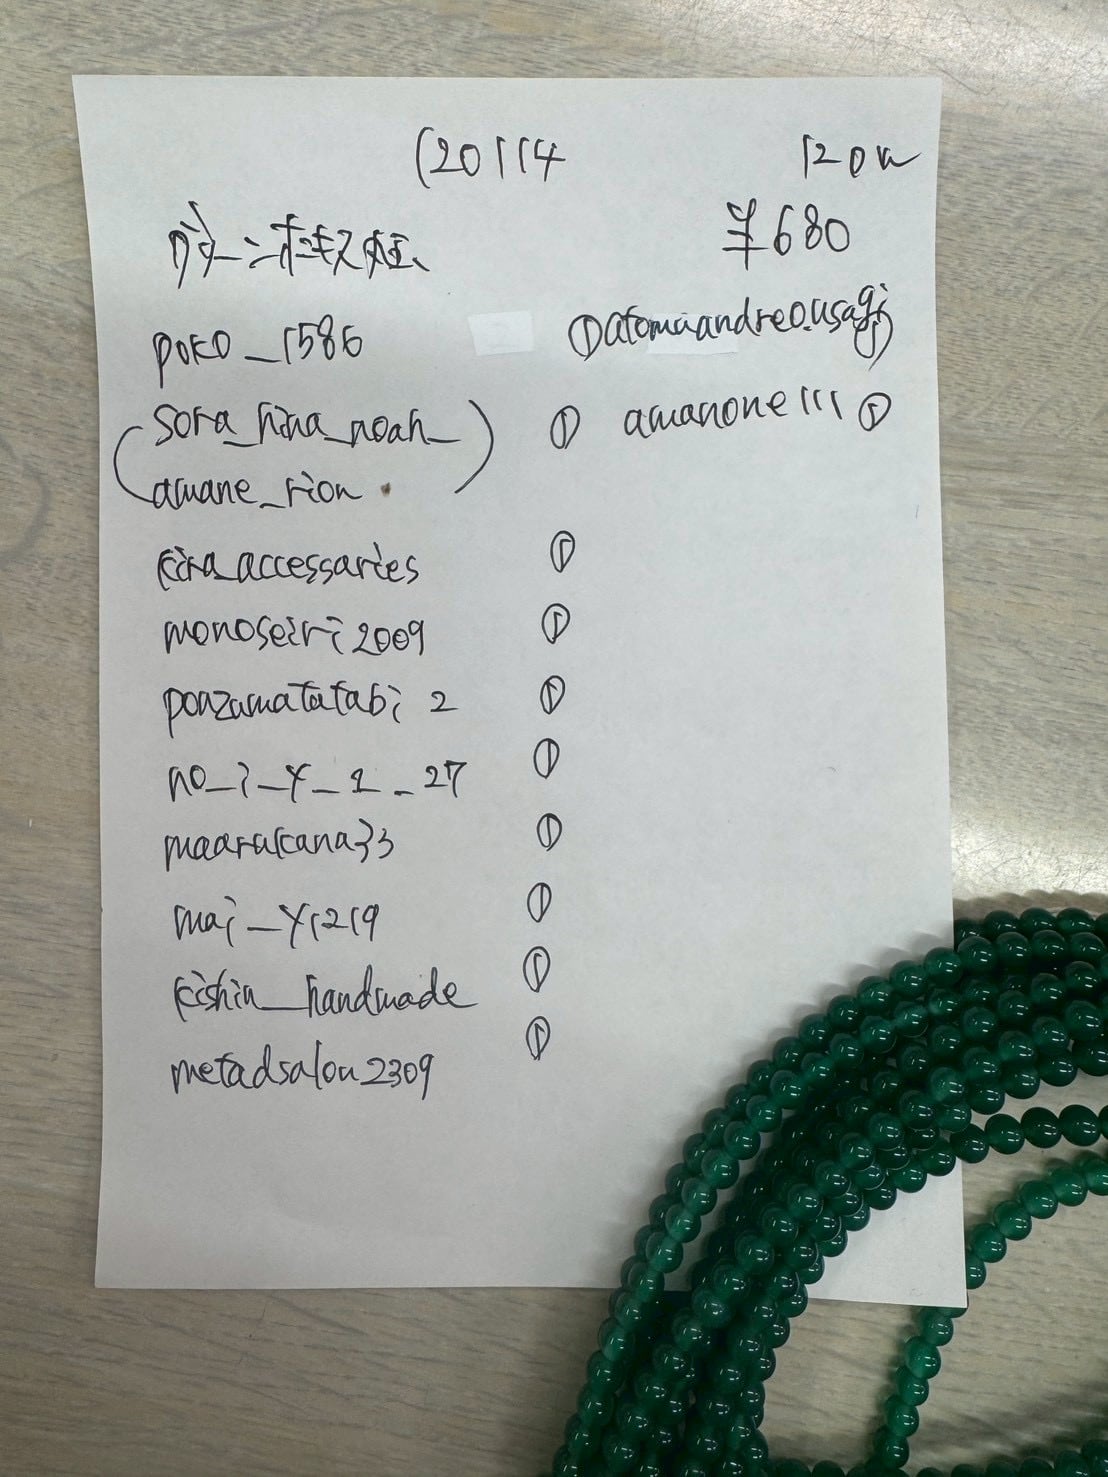 120114 120u
¥680
poko_1586
①atomuandreo.usagi
(sora_hina_noah_ ① amanone111 ①
amane_rion)
kira_accessaries ①
monoseiri2009 ①
ponzumatatabi2 ①
no_i_y_1_27 ①
maarukana33 ①
mai_y1219 ①
kishin_handmade ①
metadsalon2309 ①